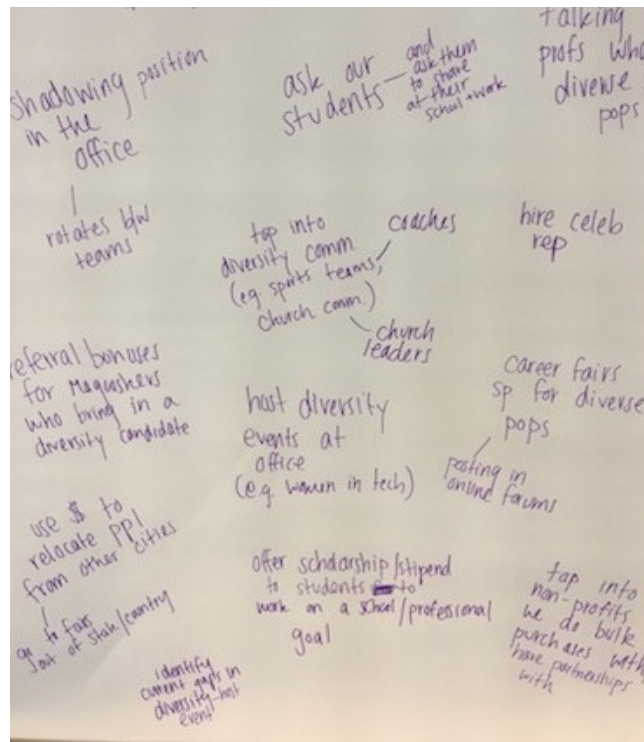 shadowing position
in the
office
rotates b/w
teams
ask our
students
and
ask them
to share
at their
school + work
talking
profs who
diverse
pops
tap into
diversity comm.
(e.g. sports teams,
church comm.)
coaches
church
leaders
hire celeb
rep
referral bonuses
for Magooshers
who bring in a
diversity candidate
host diversity
events at
office
(e.g. women in tech)
career fairs
sp for diverse
pops
posting in
online forums
use $ to
relocate ppl
from other cities
go to fairs
out of state/country
identify
current gaps in
diversity-host
event
offer scholarship/stipend
to students to
work on a school/professional
goal
tap into
non-profits
we do bulk
purchases with/
have partnerships
with